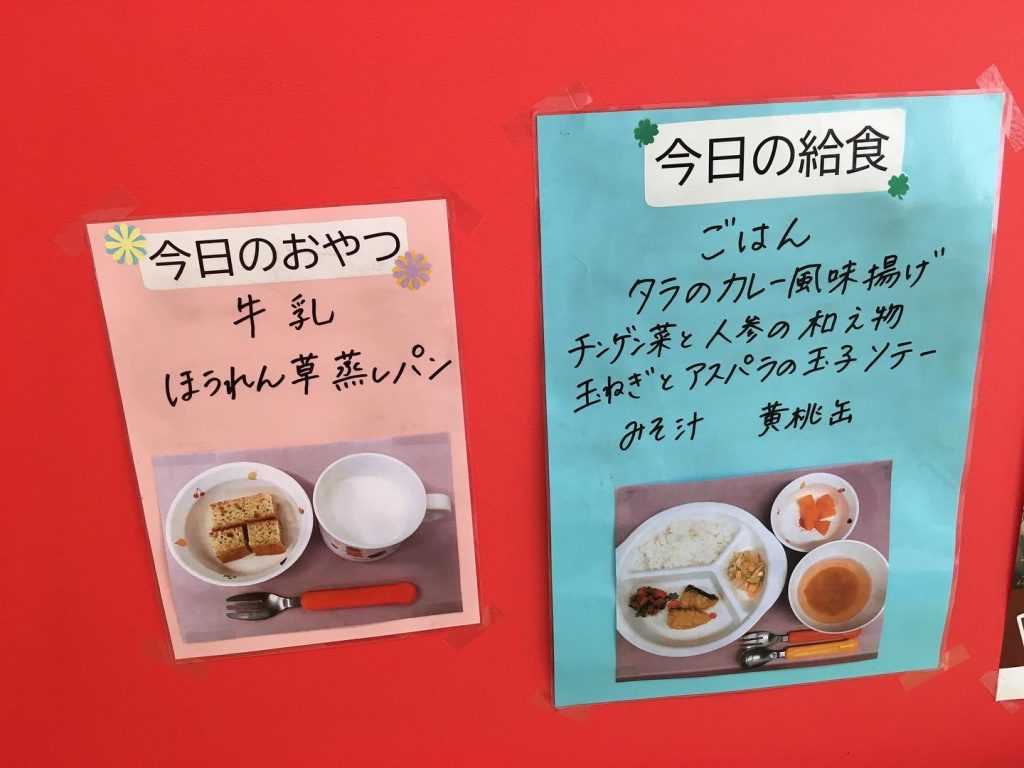 今日のおやつ
牛乳
ほうれん草蒸しパン
今日の給食
ごはん
タラのカレー風味揚げ
チンゲン菜と人参の和え物
玉ねぎとアスパラの玉子ソテー
みそ汁　黄桃缶